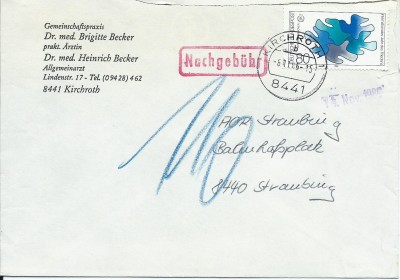 Gemeinschaftspraxis
Dr. med. Brigitte Becker
prakt. Ärztin
Dr. med. Heinrich Becker
Allgemeinarzt
Lindenstr. 17 - Tel. (0 94 28) 4 62
8441 Kirchroth
Nachgebühr
KIRCHROTH
8441
80
AOK Straubing
Bahnhofsplatz
8440 Straubing